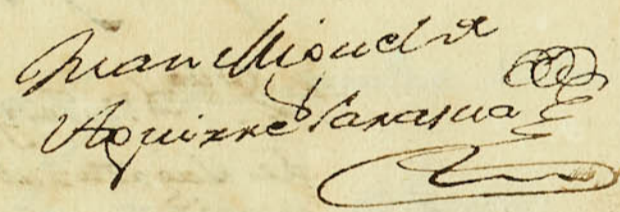 Juan Miguel de
Aguirresarasua